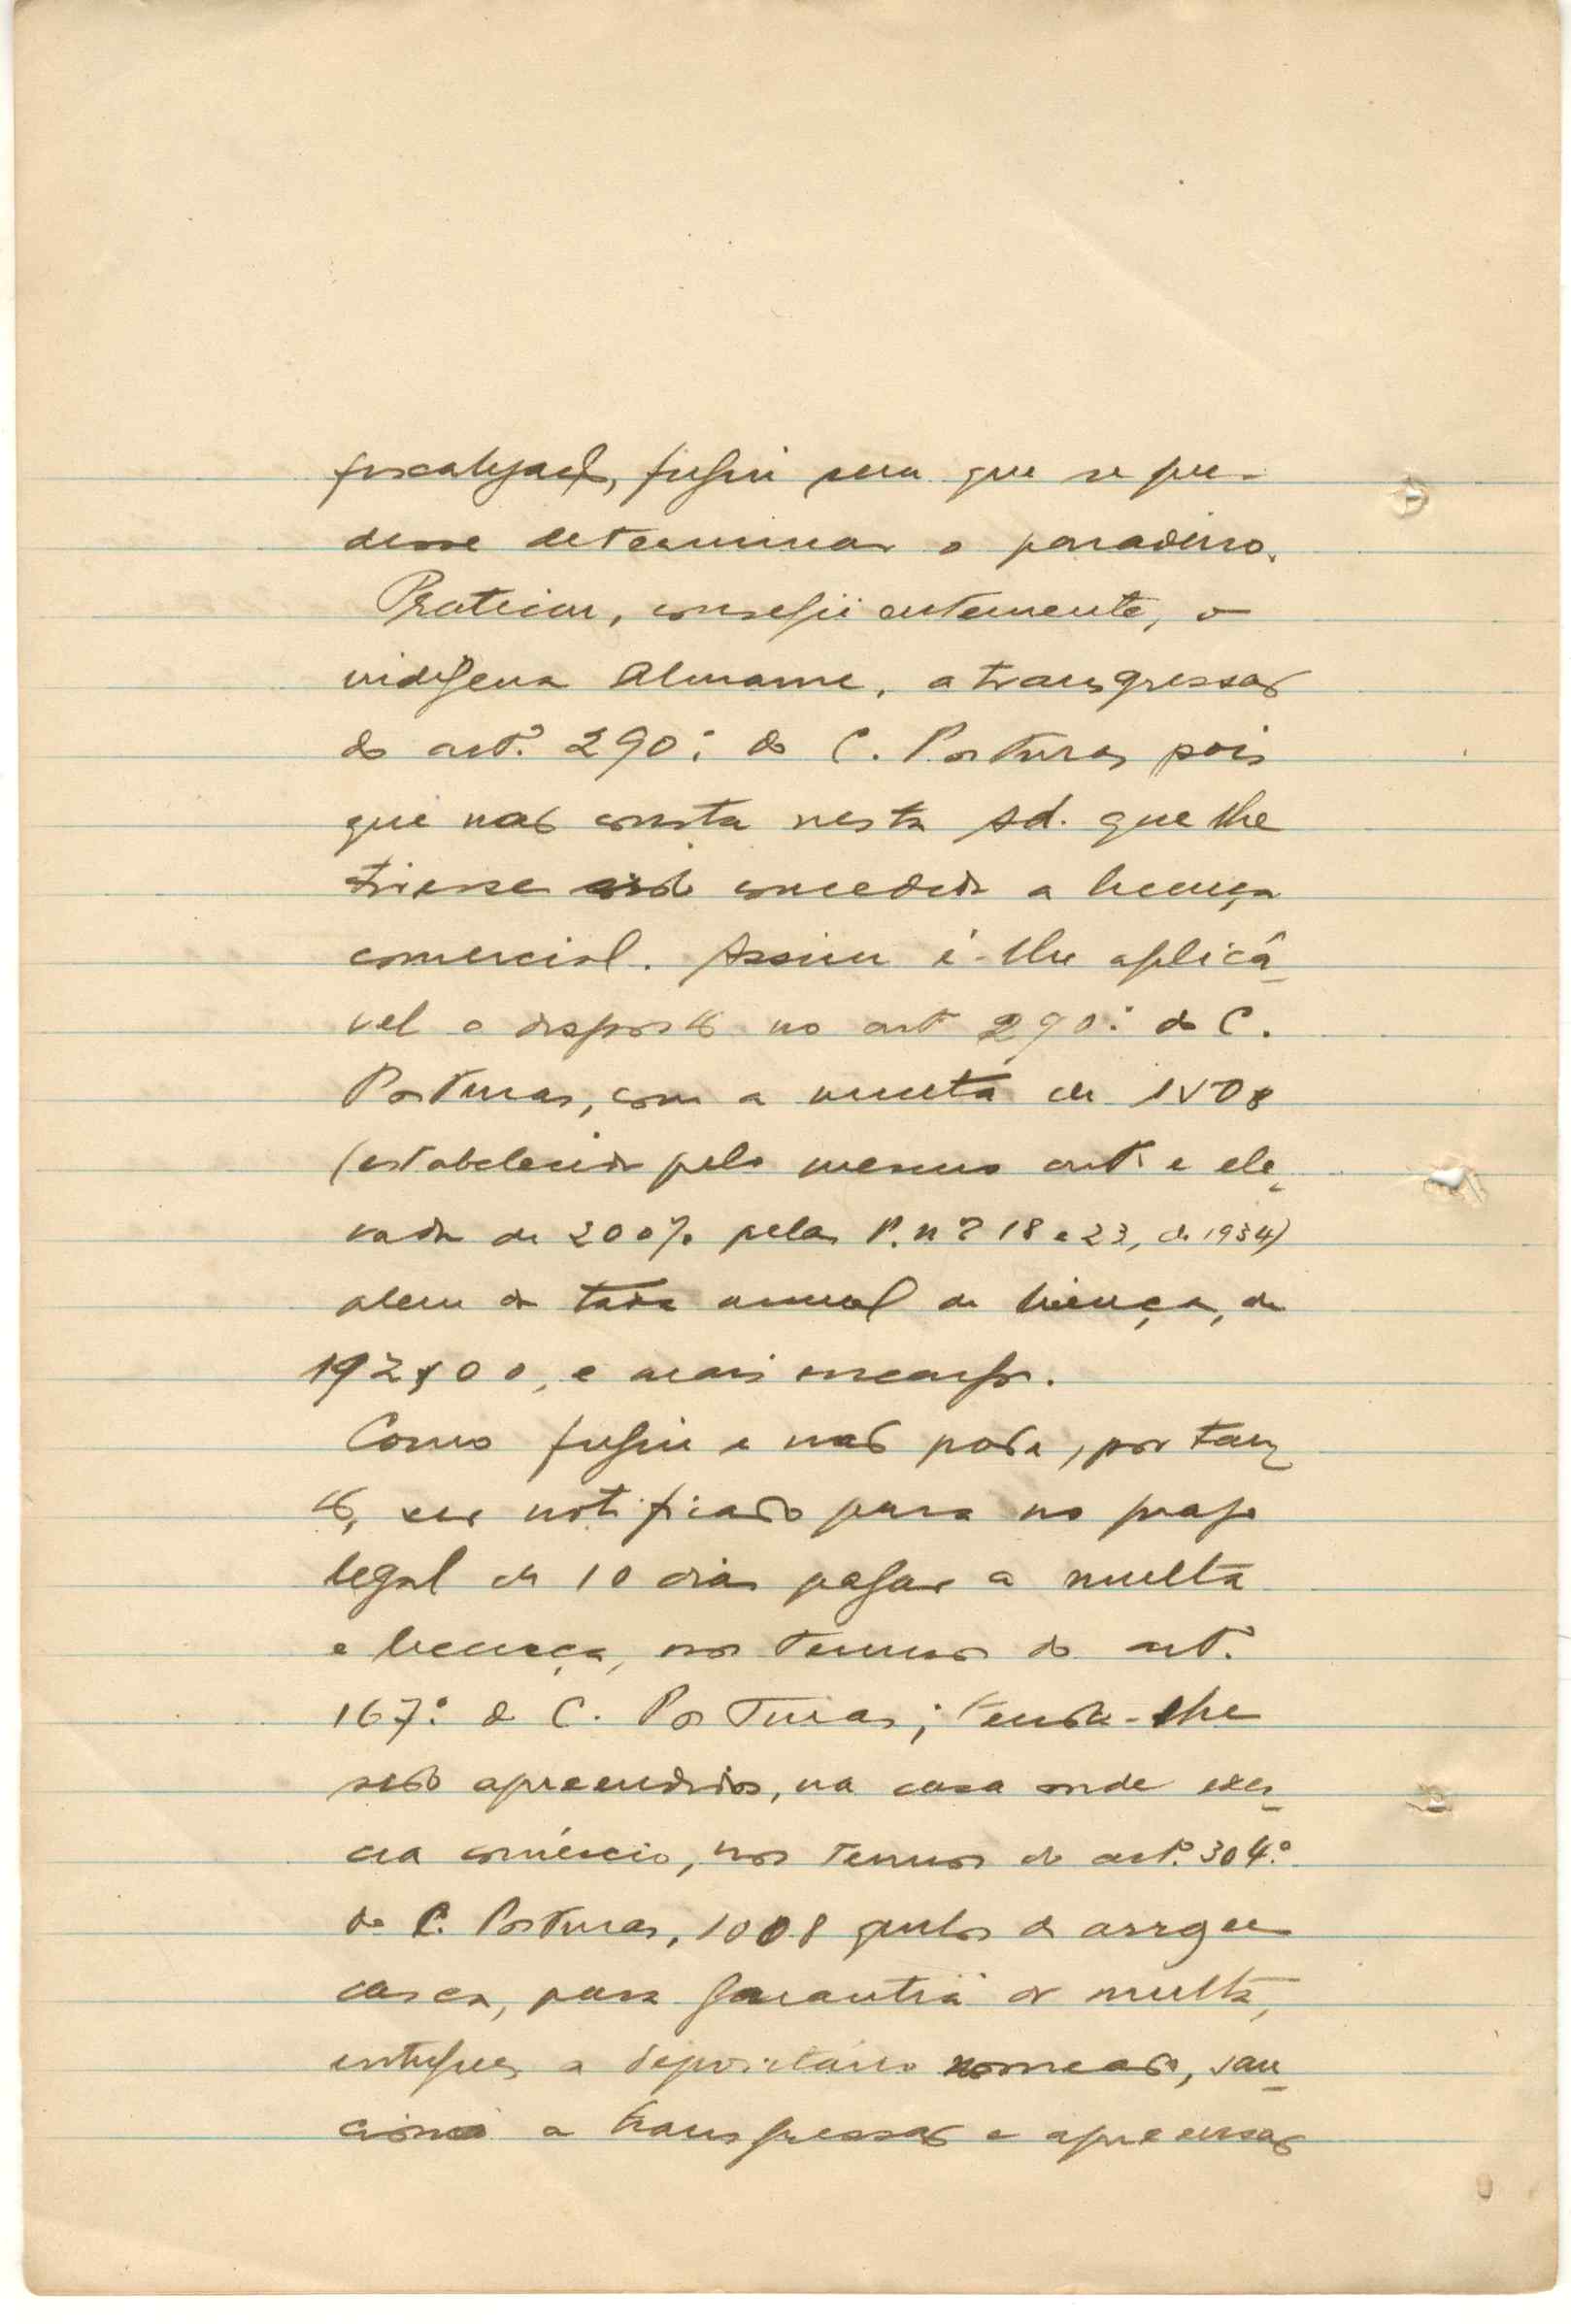 fiscalização, fugiu sem que se pu-
desse determinar o paradeiro.
Praticou, conseguintemente, o
indígena Almame, a transgressão
do art.º 290º do C. Posturas pois
que não consta nesta Ad. que lhe
tivesse sido concedida a licença
comercial. Assim é-lhe aplicá-
vel o disposto no art 290º do C.
Posturas, com a multa de 150$
(estabelecida pelo mesmo art. e ele-
vada de 200% pelas P. nº 18 e 23, de 1934)
alem da taxa anual de licença, de
192$00, e mais encargos.
Como fugiu e não pode, por tan-
to, ser notificado para no prazo
legal de 10 dias pagar a multa
e licença, nos termos do art.º
167º do C. Posturas; tendo-lhe
sido apreendidos, na casa onde exer-
cia comércio, nos termos do art.º 304.º
do C. Posturas, 1008 quilos de arroz em
casca, para garantia da multa,
entregues a depositário nomeado, san-
ciono a transgressão e apreensão